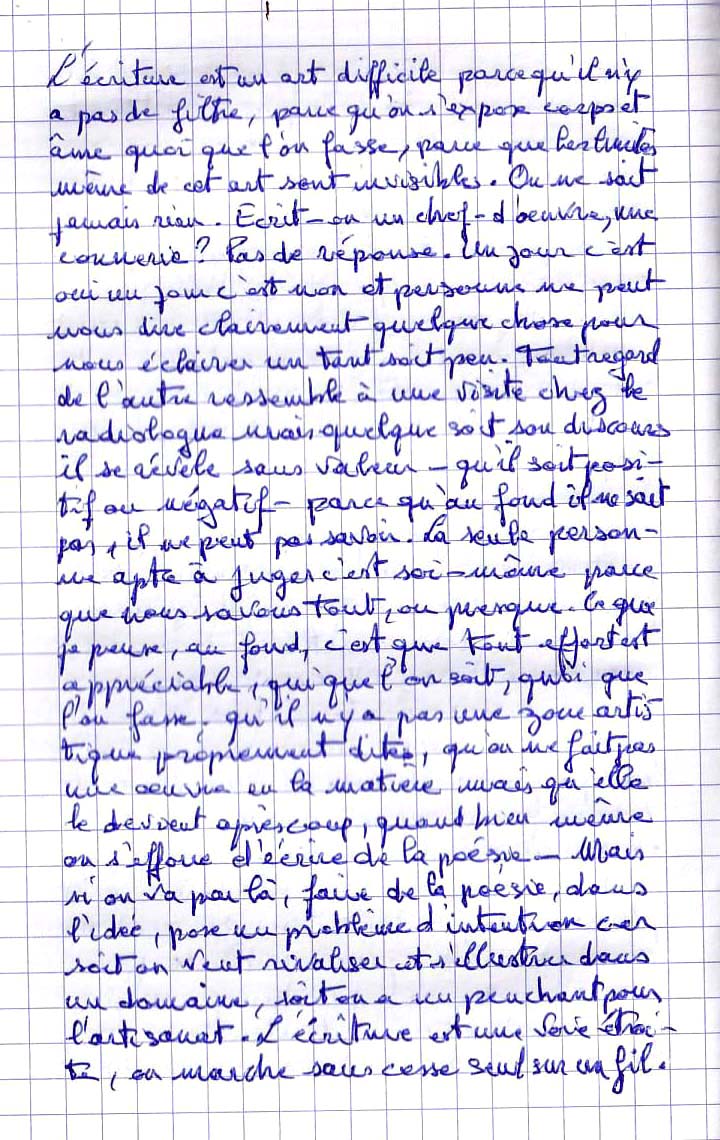 L'écriture est un art difficile parce qu'il n'y
a pas de filtre, parce qu'on s'expose corps et
âme quoi que l'on fasse, parce que les limites
même de cet art sont invisibles. On ne sait
jamais rien. Ecrit-on un chef-d'oeuvre, une
connerie? Pas de réponse. Un jour c'est
oui un jour c'est non et personne ne peut
nous dire clairement quelque chose pour
nous éclairer un tant soit peu. Tout regard
de l'autre ressemble à une visite chez le
radiologue mais quelque soit son discours
il se révèle sans valeur - qu'il soit posi-
tif ou négatif - parce qu'au fond il ne sait
pas, il ne peut pas savoir. La seule person-
ne apte à juger c'est soi-même parce
que nous savons tout, ou presque. Ce que
je pense, au fond, c'est que tout effort est
appréciable, qui que l'on soit, quoi que
l'on fasse. qu'il n'y a pas une zone artis
tique proprement dite, qu'on ne fait pas
une oeuvre en la matière mais qu'elle
le devient après coup, quand bien même
on s'efforce d'écrire de la poésie - Mais
si on va par là, faire de la poésie, dans
l'idée, pose un problème d'intention car
soit on veut rivaliser et s'illustrer dans
un domaine, soit on a un penchant pour
l'artisanat. L'écriture est une voie étroi-
te, on marche sans cesse seul sur un fil.